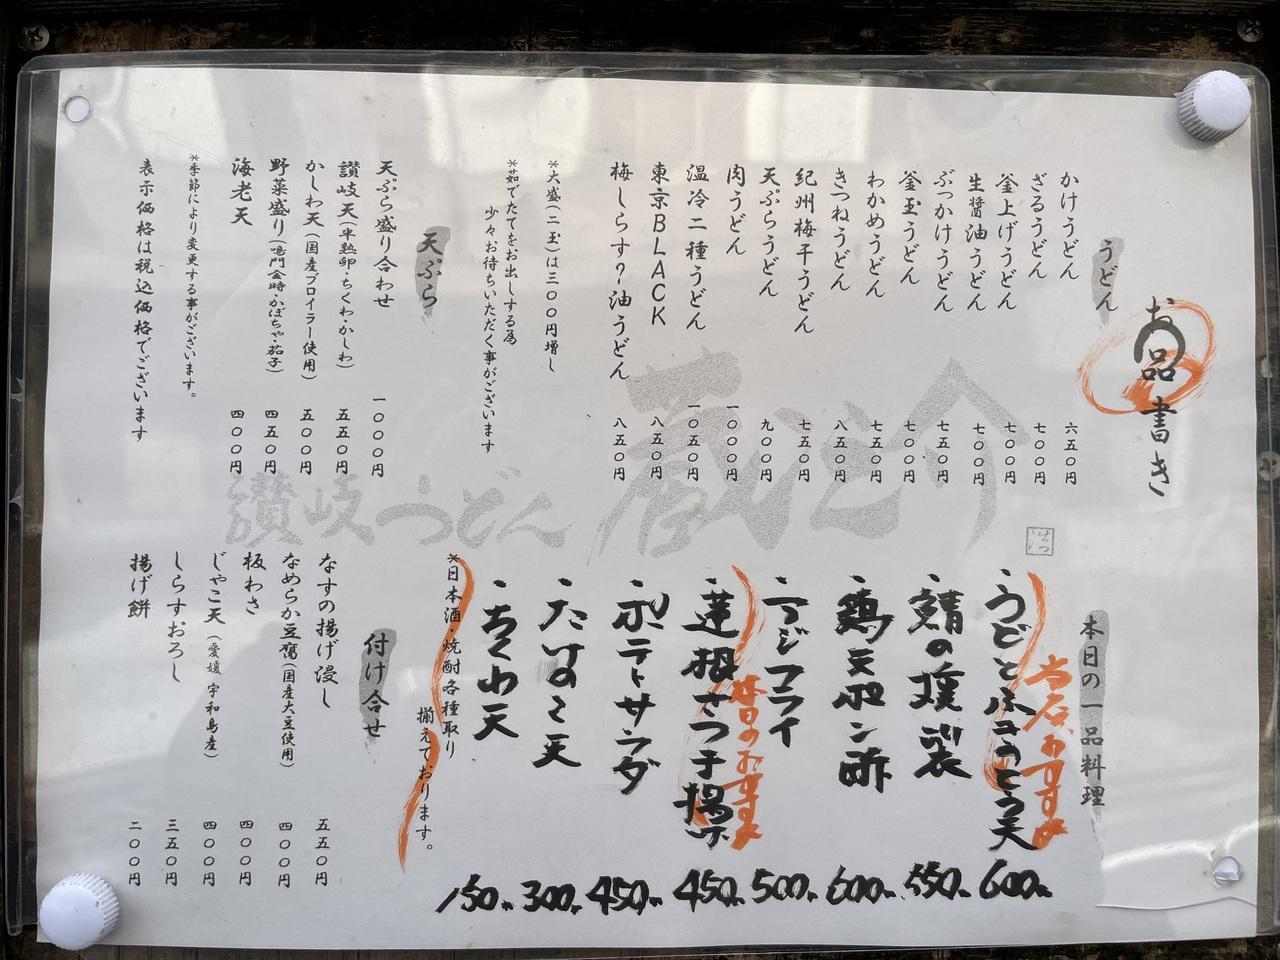 お品書き
うどん
かけうどん 六五〇円
ざるうどん 七〇〇円
釜上げうどん 七〇〇円
生醤油うどん 七〇〇円
ぶっかけうどん 七五〇円
釜玉うどん 七〇〇円
わかめうどん 七五〇円
きつねうどん 八五〇円
紀州梅干うどん 七五〇円
天ぷらうどん 九〇〇円
肉うどん 一〇〇〇円
温冷二種うどん 一〇五〇円
東京BLACK 八五〇円
梅しらす?油うどん 八五〇円
*大盛(二玉)は三〇〇円増し
*茹でたてをお出しする為
少々お待ちいただく事がございます
天ぷら
天ぷら盛り合わせ 一〇〇〇円
讃岐天(半熟卵・ちくわ・かしわ) 五五〇円
かしわ天(国産ブロイラー使用) 五〇〇円
野菜盛り(鳴門金時・かぼちゃ・茄子) 四五〇円
海老天 四〇〇円
*季節により変更する事がございます。
表示価格は税込価格でございます
讃岐うどん 蔵之介
本日の一品料理
当店おすすめ
・うどとふきのとう天 600
・鯖の燻製 550
・鶏天ポン酢 600
・アジフライ 500
本日のおすすめ
・蓮根ギョウ子揚 450
・ポテトサラダ 450
・たけのこ天 300
・ちくわ天 150
*日本酒・焼酎各種取り
揃えております。
付け合せ
なすの揚げ浸し 五五〇円
なめらか豆腐(国産大豆使用) 四〇〇円
板わさ 四〇〇円
じゃこ天(愛媛 宇和島産) 四〇〇円
しらすおろし 三五〇円
揚げ餅 二〇〇円